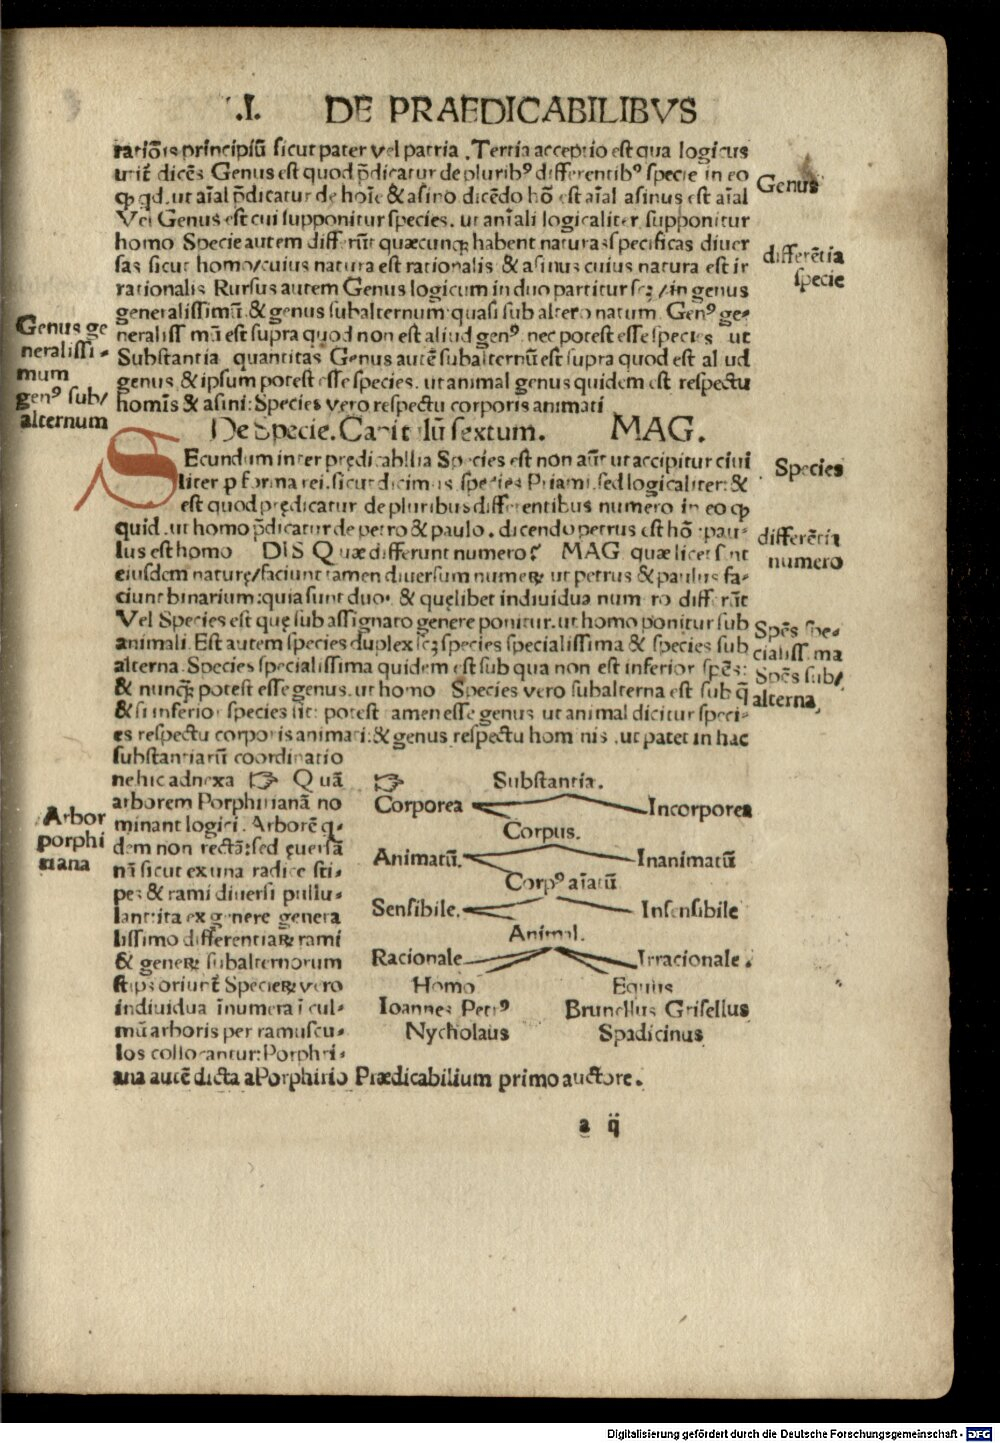 .I. DE PRAEDICABILIBVS
ratiõis principiũ sicut pater vel patria . Tertia acceptio est qua logicus
utit᷑ dicẽs Genus est quod p̃dicatur de pluribꝰ differentibꝰ specie in eo
ꝙ qd. ut aĩal p̃dicatur de hoĩe & asino dicẽdo hõ est aĩal asinus est aĩal
Vel Genus est cui supponitur species. ut anĩali logicaliter supponitur
homo Specie autem differũt quæcunqꝫ habent naturas specificas diuer
sas sicut homo/cuius natura est rationalis & asinus cuius natura est ir
rationalis Rursus autem Genus logicum in duo partitur scꝫ/in genus
generalissimũ & genus subalternum quasi sub altero natum. Genꝰ ge-
neraliss mũ est supra quod non est aliud genꝰ. nec potest esse species ut
Substantia quantitas Genus autẽ subalternũ est supra quod est al ud
genus & ipsum potest esse species. ut animal genus quidem est respectu
homĩs & asini: Species vero respectu corporis animati
Genus
differẽtia
specie
Genus ge
neralissi-
mum
genꝰ sub/
alternum
De Specie. Capit lũ sextum. MAG.
SEcundum inter prędicabilia Species est non aũt ut accipitur ciui
liter p forma rei. sicut dicimus species Priami. sed logicaliter: &
est quod prędicatur de pluribus differentibus numero in eo ꝙ
quid. ut homo p̃dicatur de petro & paulo. dicendo petrus est hõ :pau-
lus est homo DIS Quæ differunt numero? MAG quæ licet sint
eiusdem naturę/faciunt tamen diuersum numeꝝ ut petrus & paulus fa-
ciunt binarium: quia sunt duo. & quęlibet indiuidua num ro differũt
Vel Species est quę sub assignato genere ponitur. ut homo ponitur sub
animali. Est autem species duplex scꝫ species specialissima & species sub
alterna. Species specialissima quidem est sub qua non est inferior spẽs:
& nunqꝫ potest esse genus. ut homo Species vero subalterna est sub q̃
& si inferior species sit: potest amen esse genus ut animal dicitur speci-
es respectu corporis animati: & genus respectu hom nis . ut patet in hac
Species
differẽtia
numero
Spẽs spe-
cialiss. ma
Spẽs sub/
alterna
substantiarũ coordinatio
ne hic adnexa ☞ Quã
arborem Porphirianã no
minant logici. Arborẽ q-
dem non rectã: sed ęuersã
nã sicut ex una radice sti-
pes & rami diuersi pullu-
lant:ita ex genere genera
lissimo differentiaꝝ rami
& geneꝝ subalternorum
stips oriunt᷑ Specieꝝ vero
indiuidua ĩnumera ĩ cul-
mũ arboris per ramuscu-
los collocantur: Porphri-
ana autẽ dicta a Porphirio Prædicabilium primo auctore.
Arbor
porphi
riana
☞ Substantia.
Corporea Incorporea
Corpus.
Animatũ. Inanimatũ
Corpꝰ aĩatũ
Sensibile. Insensibile
Animal.
Racionale Irracionale.
Homo Equus
Ioannes Petrꝰ Brunellus Grisellus
Nycholaus Spadicinus
a q̈
Digitalisierung gefördert durch die Deutsche Forschungsgemeinschaft - DFG